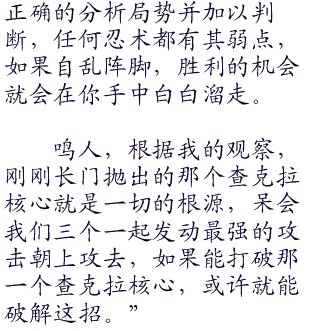 正确的分析局势并加以判
断，任何忍术都有其弱点，
如果自乱阵脚，胜利的机会
就会在你手中白白溜走。
鸣人，根据我的观察，
刚刚长门抛出的那个查克拉
核心就是一切的根源，呆会
我们三个一起发动最强的攻
击朝上攻去，如果能打破那
一个查克拉核心，或许就能
破解这招。”